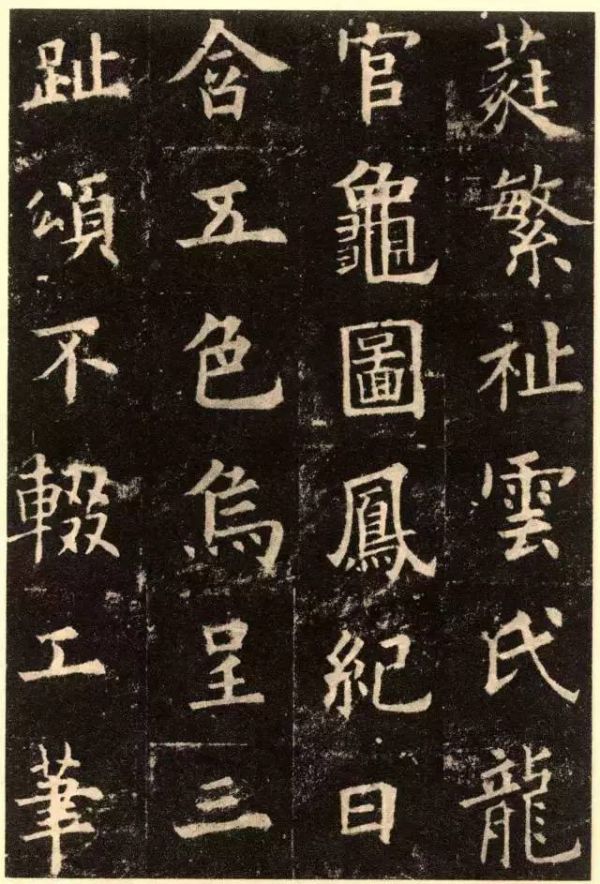 蕤繁祉雲氏龍
官龜圖鳳紀日
含五色烏呈三
趾頌不輟工筆